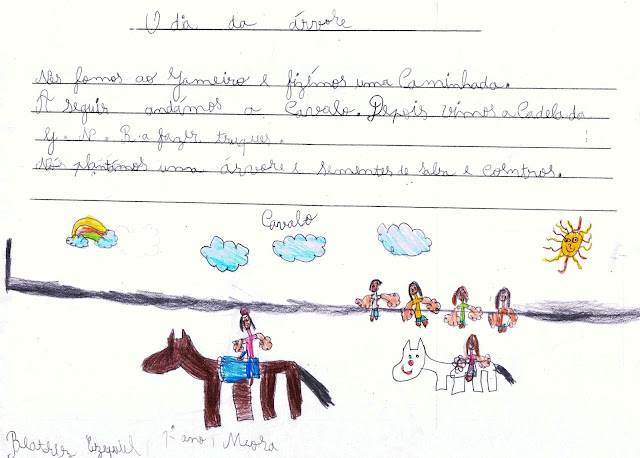 O dia da árvore
Nós fomos ao Gameiro e fizémos uma Caminhada.
A seguir andámos a Cavalo. Depois vimos a Cadela da
G. N. R. a fazer truques.
Nós plantámos uma árvore e sementes de salsa e coentros.
Cavalo
Beatriz Ezequiel, 1º ano, Mora